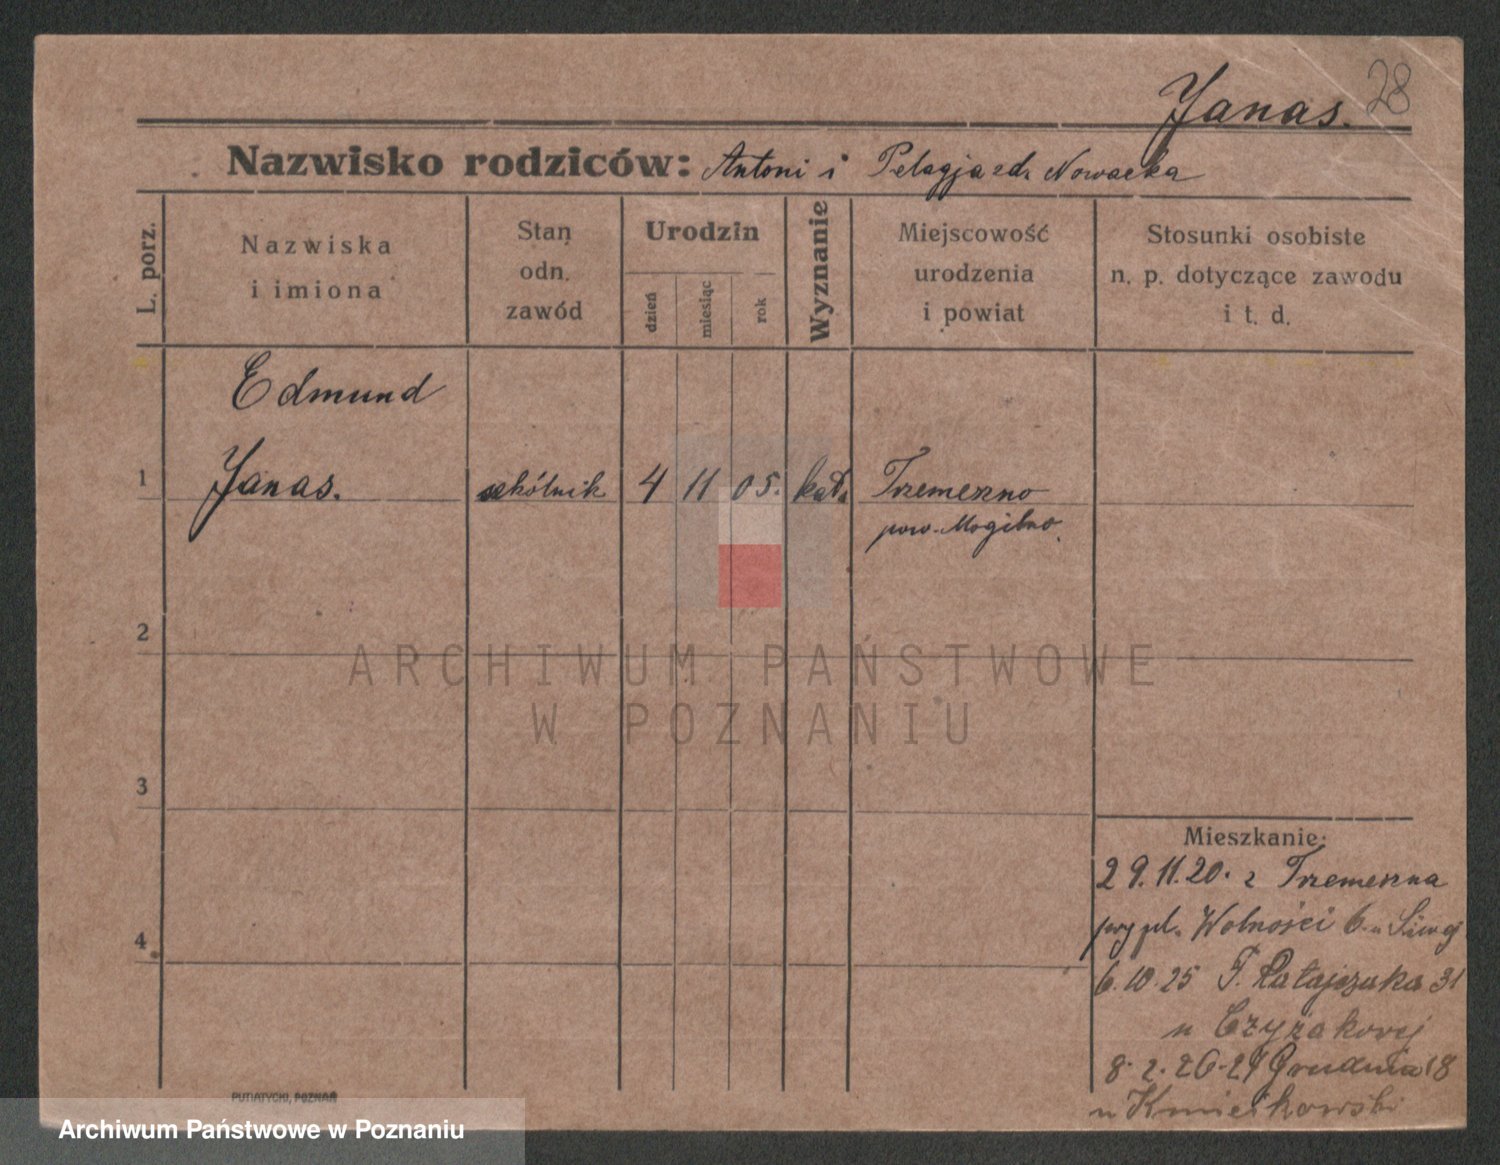 28
Janas.
Nazwisko rodziców: Antoni i Pelagja zd. Nowacka
L. porz.
Nazwiska
i imiona
Stan
odn.
zawód
Urodzin
dzień
miesiąc
rok
Wyznanie
Miejscowość
urodzenia
i powiat
Stosunki osobiste
n. p. dotyczące zawodu
i t. d.
Edmund
1 Janas. szkólnik 4 11 05. kat. Trzemeszno
pow. Mogilno.
2
ARCHIWUM PAŃSTWOWE
W POZNANIU
3
Mieszkanie:
29.11.20. z Trzemeszna
pl. Wolności 6 u
4
6.10.25 F. Ratajczaka 31
u Czyżakowej
8.2.26 - 27 Grudnia 18
u
PUTIATYCKI, POZNAŃ
Archiwum Państwowe w Poznaniu